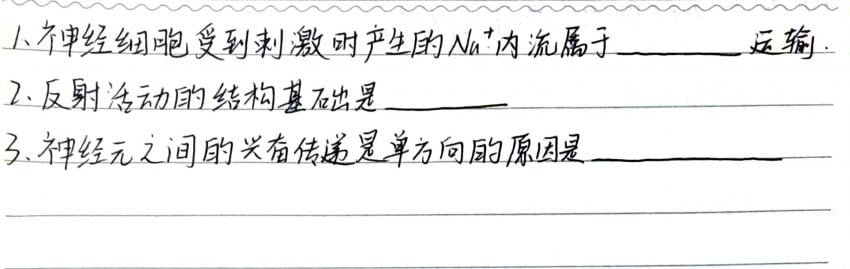 1、神经细胞受到刺激时产生的Na⁺内流属于________运输.
2、反射活动的结构基础是________
3、神经元之间的兴奋传递是单方向的原因是____________